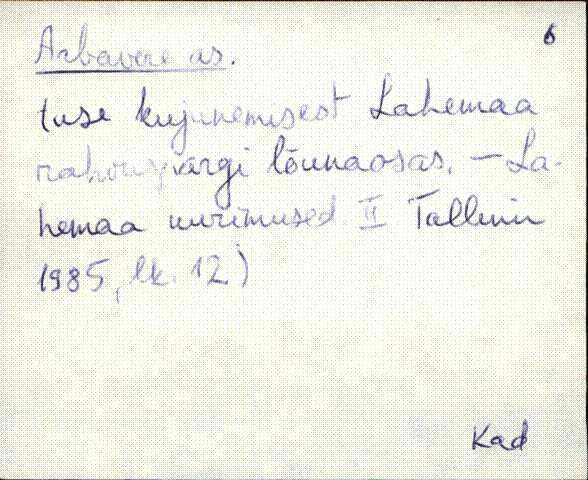 6
Arbavere as.
tuse kujunemisest Lahemaa
rahvuspargi lõunaosas. – La-
hemaa uurimused II Tallinn
1985, lk. 12)
Kad